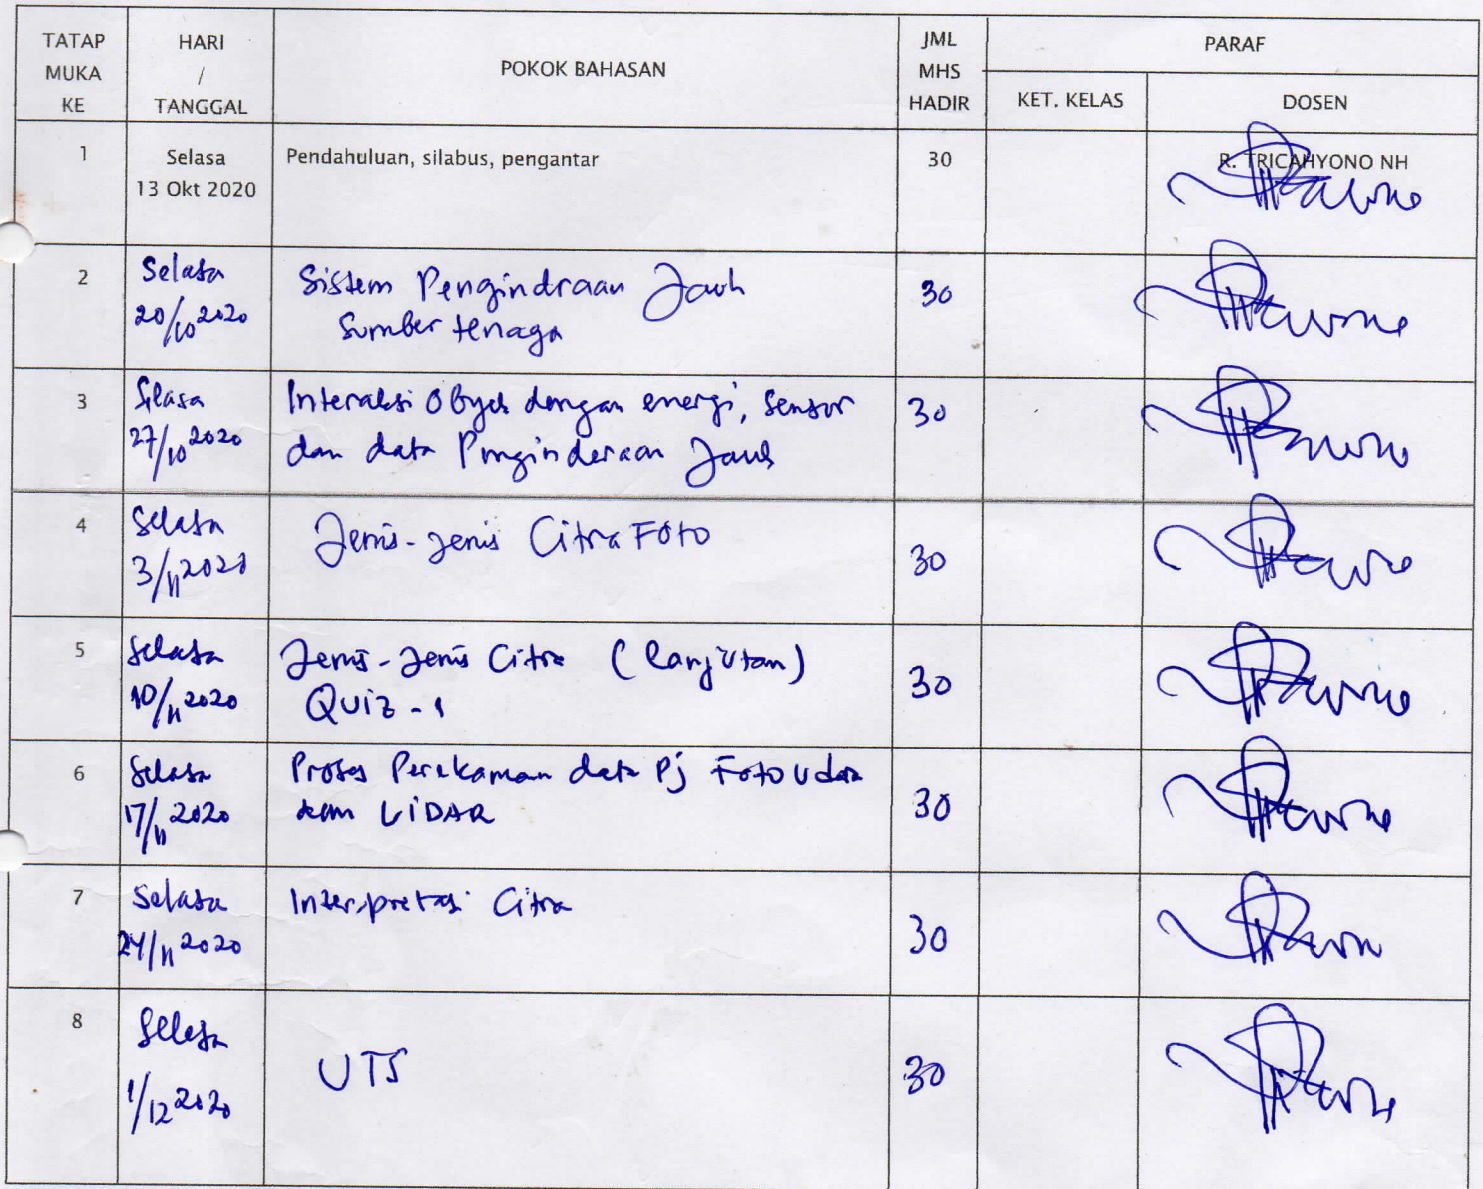 TATAP MUKA KE
HARI / TANGGAL
POKOK BAHASAN
JML MHS HADIR
PARAF
KET. KELAS
DOSEN
1
Selasa
13 Okt 2020
Pendahuluan, silabus, pengantar
30
R. TRICAHYONO NH
2
Selasa
20/10 2020
Sistem Pengindraan Jauh
Sumber tenaga
30
3
Selasa
27/10 2020
Interaksi Obyek dengan energi, Sensor
dan data Penginderaan Jauh
30
4
Selasa
3/11 2020
Jenis-jenis Citra FOTO
30
5
Selasa
10/11 2020
Jenis-Jenis Citra (lanjutan)
Quiz-1
30
6
Selasa
17/11 2020
Proses Perekaman data Pj Foto Udara
dan LiDAR
30
7
Selasa
24/11 2020
Interpretasi Citra
30
8
Selasa
1/12 2020
UTS
30